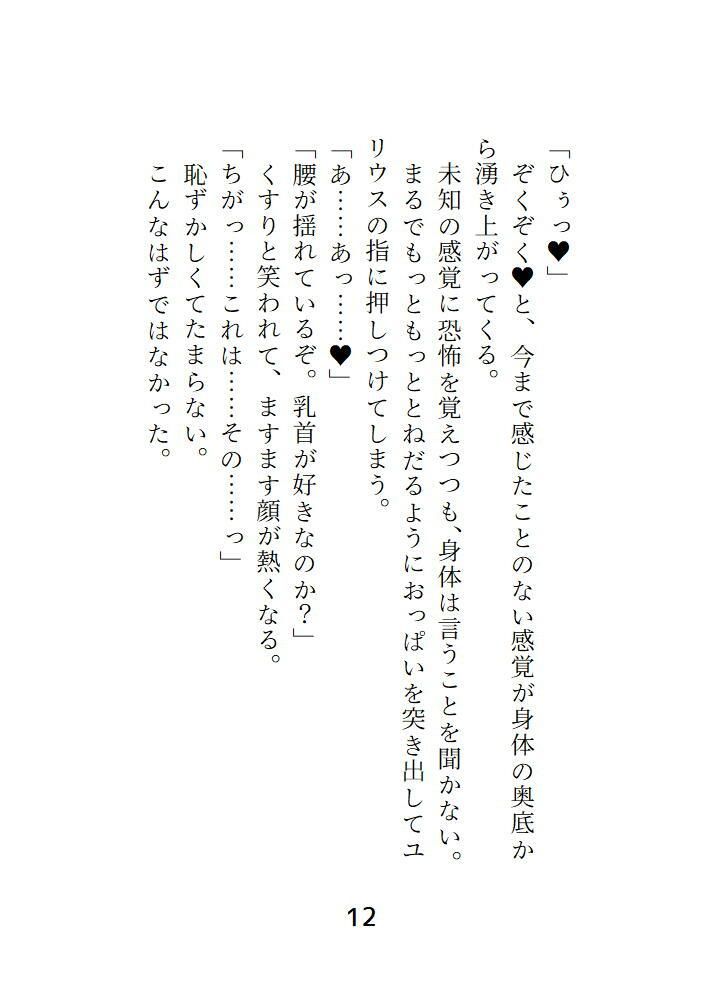 「ひぅっ♥」
　ぞくぞく♥と、今まで感じたことのない感覚が身体の奥底か
ら湧き上がってくる。
　未知の感覚に恐怖を覚えつつも、身体は言うことを聞かない。
　まるでもっともっととねだるようにおっぱいを突き出してユ
リウスの指に押しつけてしまう。
「あ……あっ……♥」
「腰が揺れているぞ。乳首が好きなのか？」
　くすりと笑われて、ますます顔が熱くなる。
「ちがっ……これは……その……っ」
　恥ずかしくてたまらない。
　こんなはずではなかった。
12